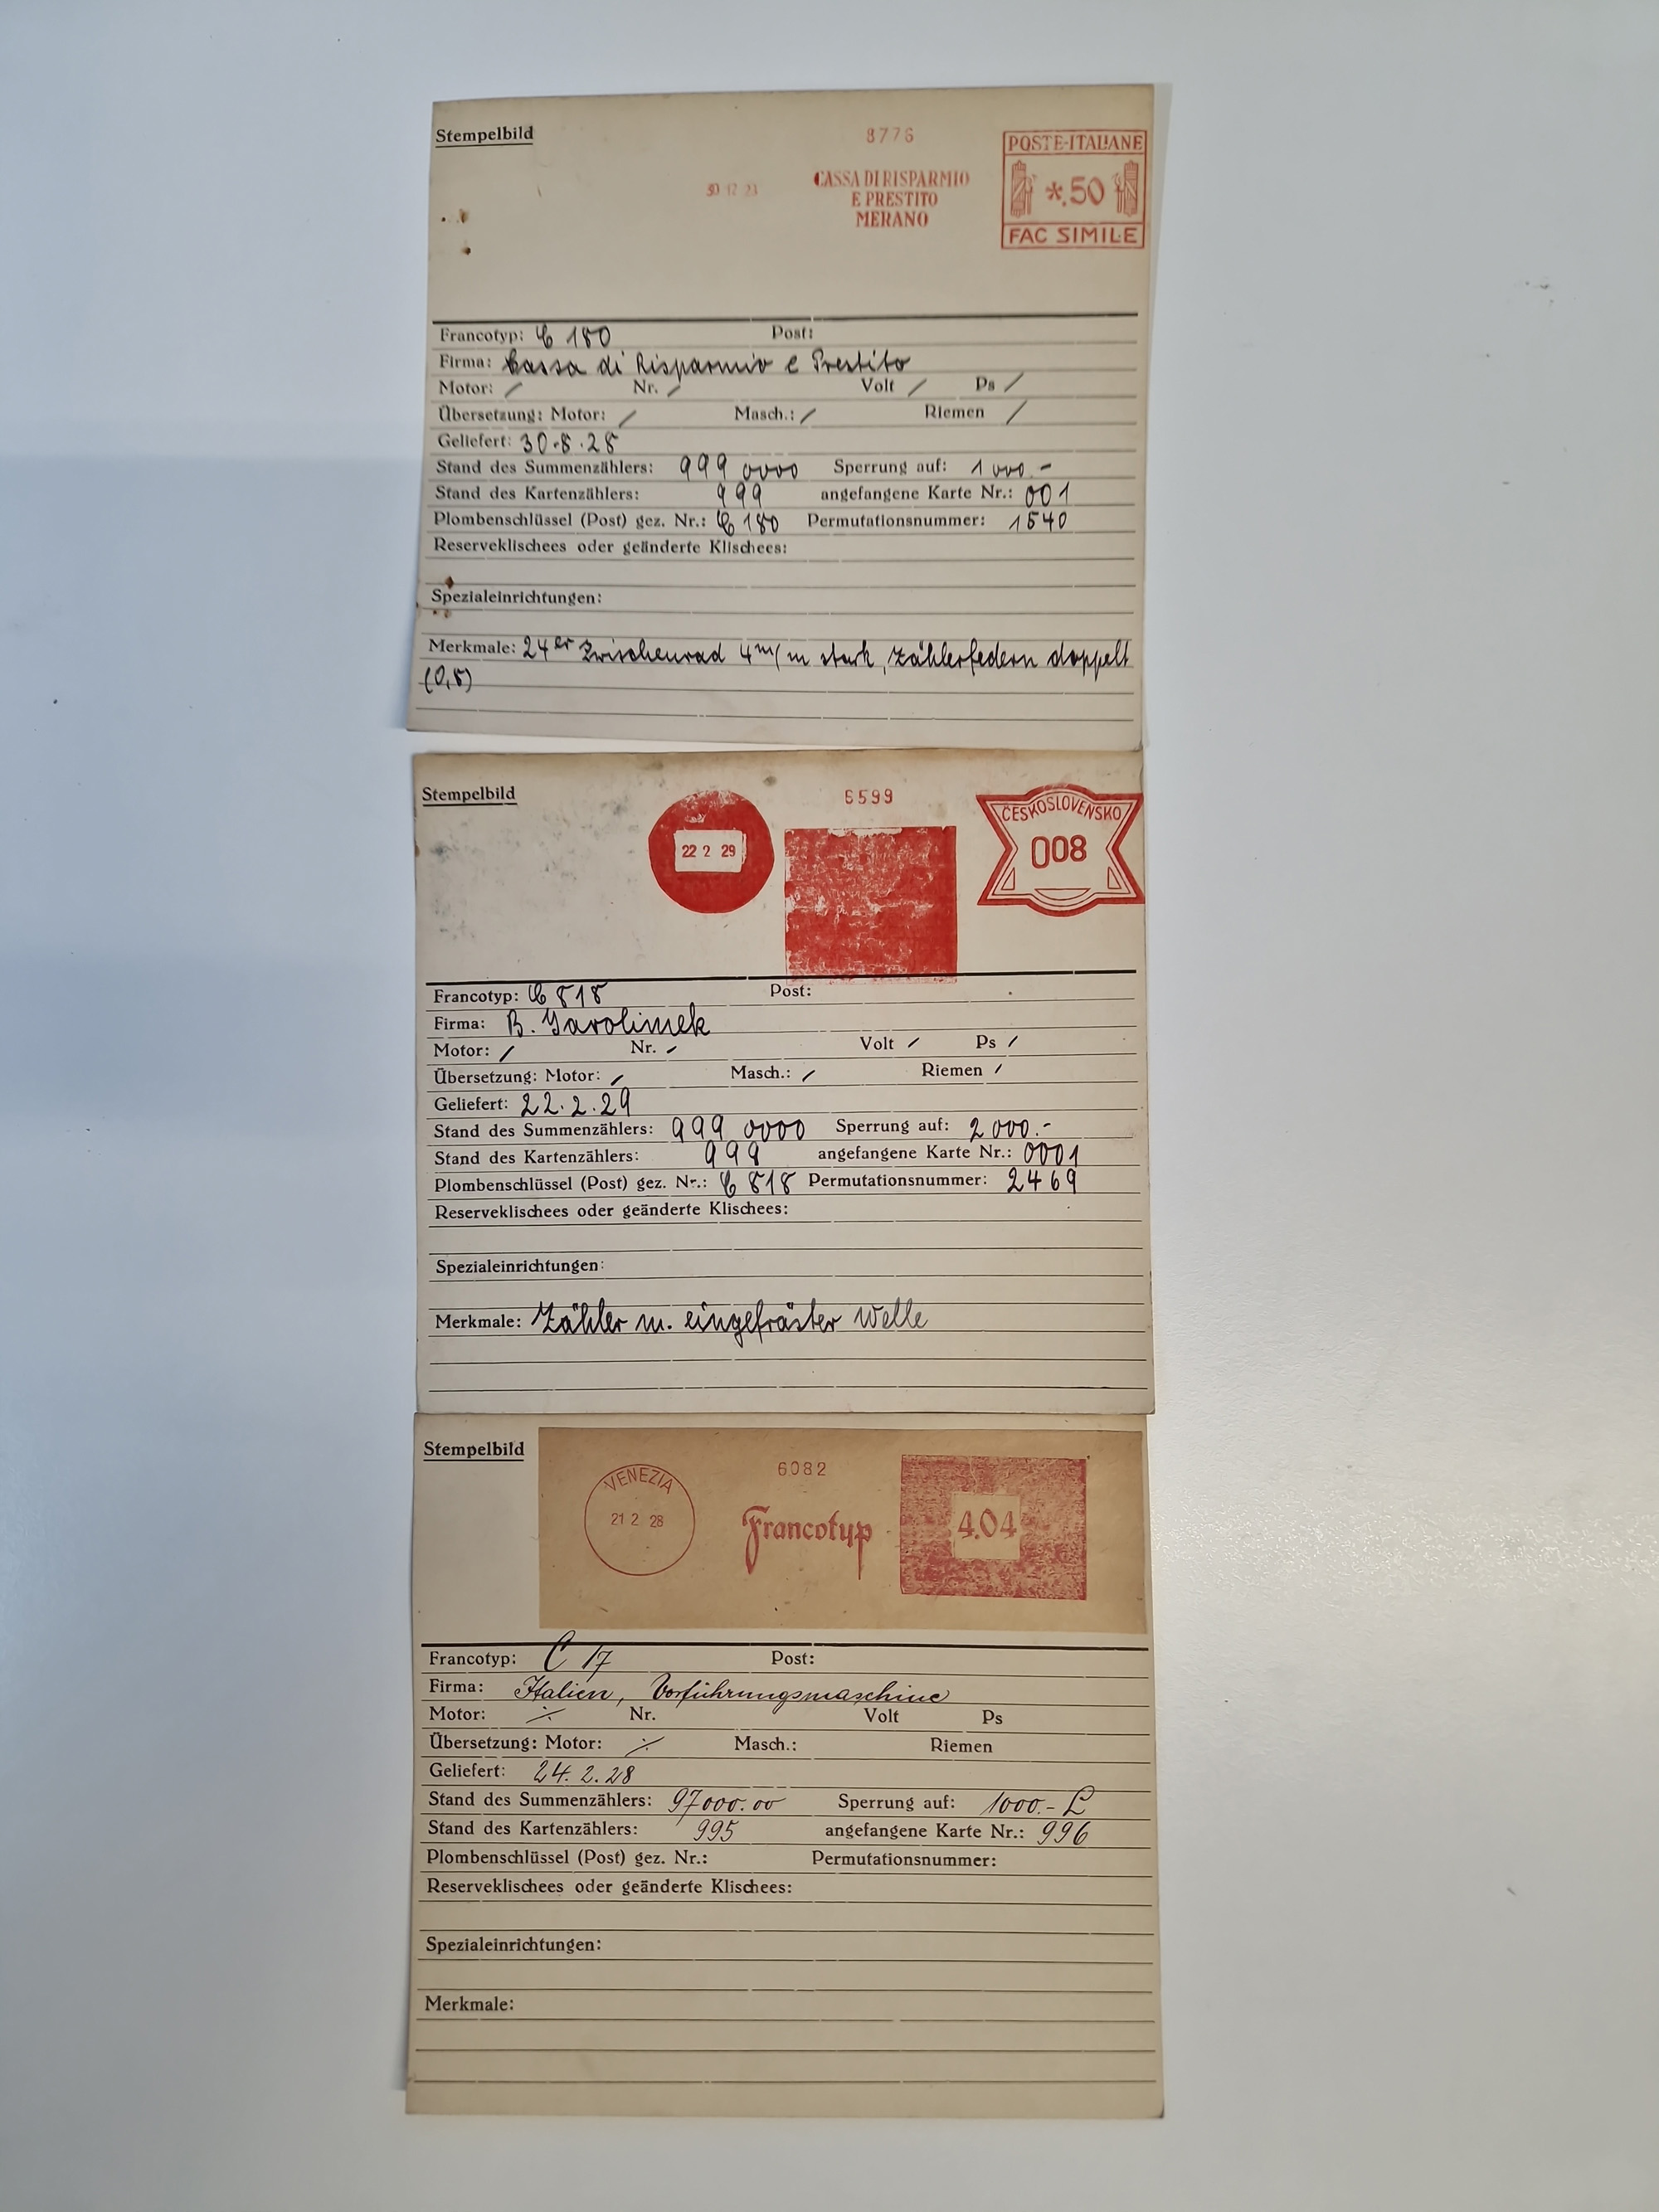 Stempelbild
8776
30 12 23
CASSA DI RISPARMIO
E PRESTITO
MERANO
POSTE-ITALIANE
*.50
FAC SIMILE
Francotyp: C 180 Post:
Firma: Cassa di Risparmio e Prestito
Motor: / Nr. / Volt / Ps /
Übersetzung: Motor: / Masch.: / Riemen /
Geliefert: 30.8.28
Stand des Summenzählers: 999 0000 Sperrung auf: 1000.-
Stand des Kartenzählers: 999 angefangene Karte Nr.: 001
Plombenschlüssel (Post) gez. Nr.: C 180 Permutationsnummer: 1540
Reserveklischees oder geänderte Klischees:
Spezialeinrichtungen:
Merkmale: 24er Zwischenrad 4 m/m stark, Zählerfedern doppelt
(0,8)
Stempelbild
22 2 29
6599
ČESKOSLOVENSKO
008
Francotyp: C 818 Post:
Firma: B. Jarolimek
Motor: / Nr. / Volt / Ps /
Übersetzung: Motor: / Masch.: / Riemen /
Geliefert: 22.2.29
Stand des Summenzählers: 999 0000 Sperrung auf: 2000.-
Stand des Kartenzählers: 999 angefangene Karte Nr.: 0001
Plombenschlüssel (Post) gez. Nr.: C 818 Permutationsnummer: 2469
Reserveklischees oder geänderte Klischees:
Spezialeinrichtungen:
Merkmale: Zähler m. eingefräster Welle
Stempelbild
VENEZIA
21 2 28
6082
Francotyp
4.04
Francotyp: C 17 Post:
Firma: Italien, Vorführungsmaschine
Motor: ⁒ Nr. Volt Ps
Übersetzung: Motor: ⁒ Masch.: Riemen
Geliefert: 24.2.28
Stand des Summenzählers: 97000.00 Sperrung auf: 1000.- L
Stand des Kartenzählers: 995 angefangene Karte Nr.: 996
Plombenschlüssel (Post) gez. Nr.: Permutationsnummer:
Reserveklischees oder geänderte Klischees:
Spezialeinrichtungen:
Merkmale: